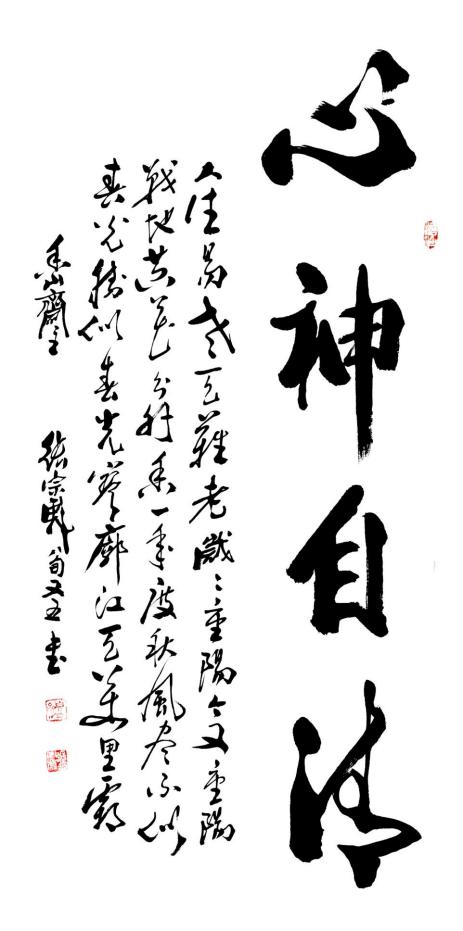 心神自清
人生易老天難老歲々重陽今又重陽
戰地黃花分外香一年度秋風勁不似
春光勝似春光寥廓江天萬里霜
山齋主 宗 又 書